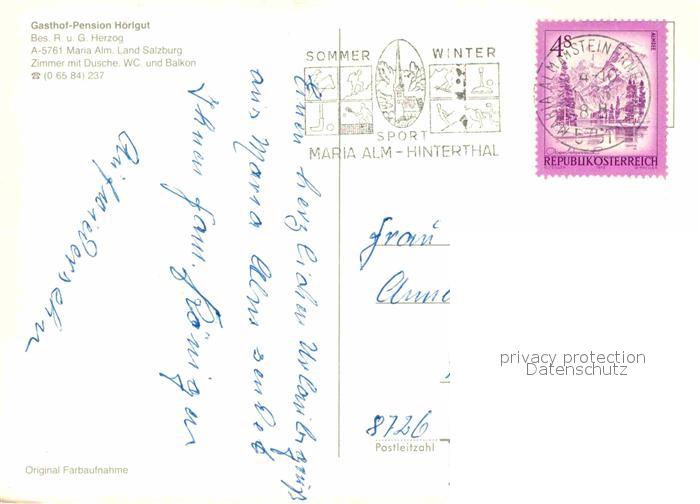 Gasthof-Pension Hörlgut
Bes. R. u. G. Herzog
A-5761 Maria Alm. Land Salzburg
Zimmer mit Dusche. WC. und Balkon
☎ (0 65 84) 237
SOMMER WINTER
SPORT
MARIA ALM - HINTERTHAL
4S
ALMSEE
REPUBLIK ÖSTERREICH
Einen herzlichen Urlaubsgruß
aus Maria Alm sendet
Ihnen Fam.
Aufwiedersehn
Frau
Anne
8726
Postleitzahl
privacy protection
Datenschutz
Original Farbaufnahme